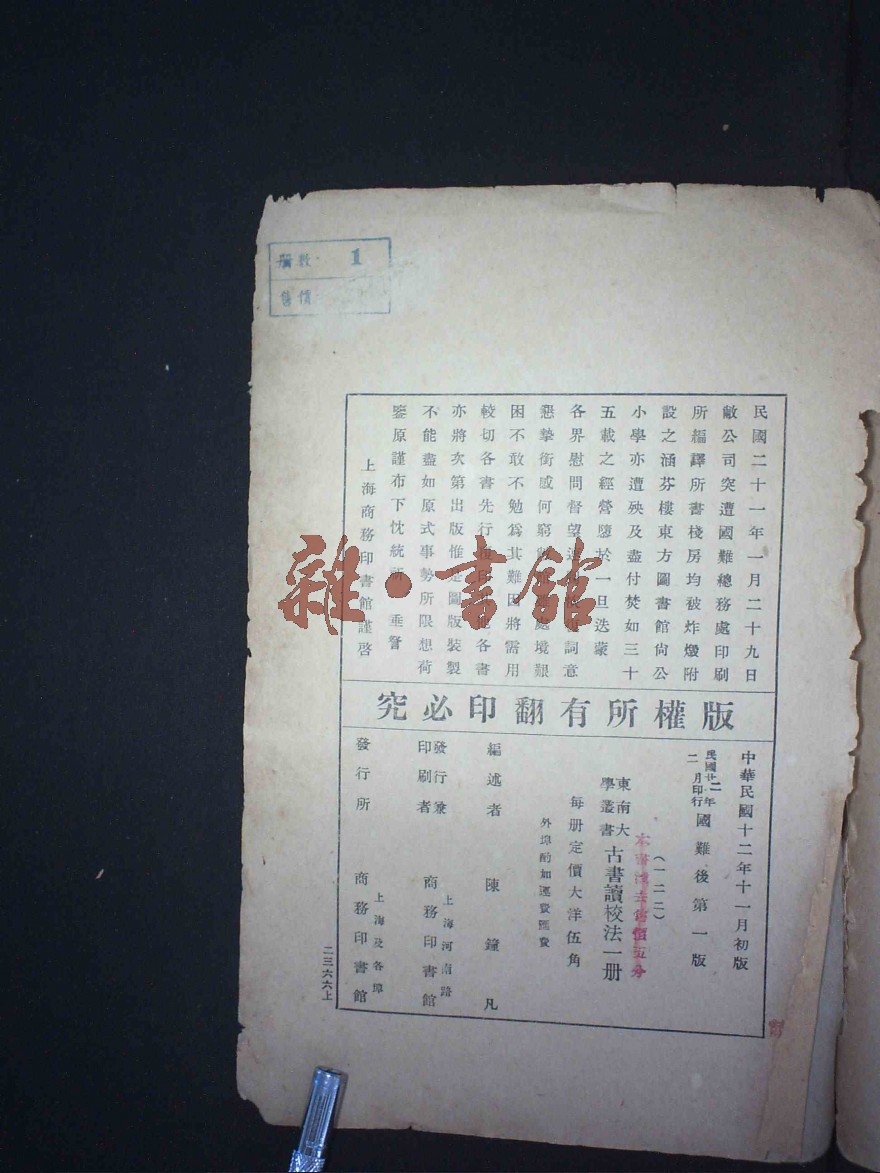 冊數 1
售價
民國二十一年一月二十九日
敝公司突遭國難總務處印刷
所編譯所書棧房均被炸燬附
設之涵芬樓東方圖書館尙公
小學亦遭殃及盡付焚如三十
五載之經營隳於一旦迭蒙
各界慰問督望 詞意
懇摯銜感何窮 處境艱
困不敢不勉爲其難因將需用
較切各書先行 印 他各書
亦將次第出版惟是圖版裝製
不能盡如原式事勢所限想荷
鑒原謹布下忱統祈 垂詧
上海商務印書館謹啓
雜·書館
版權所有翻印必究
中華民國十二年十一月初版
民國廿二年二月印行 國難後第一版
(一二二)
東南大學叢書 古書讀校法一册
每册定價大洋伍角
外埠酌加運費匯費
編述者 陳鐘凡
發行兼印刷者 上海河南路 商務印書館
發行所 上海及各埠 商務印書館
二三六六上